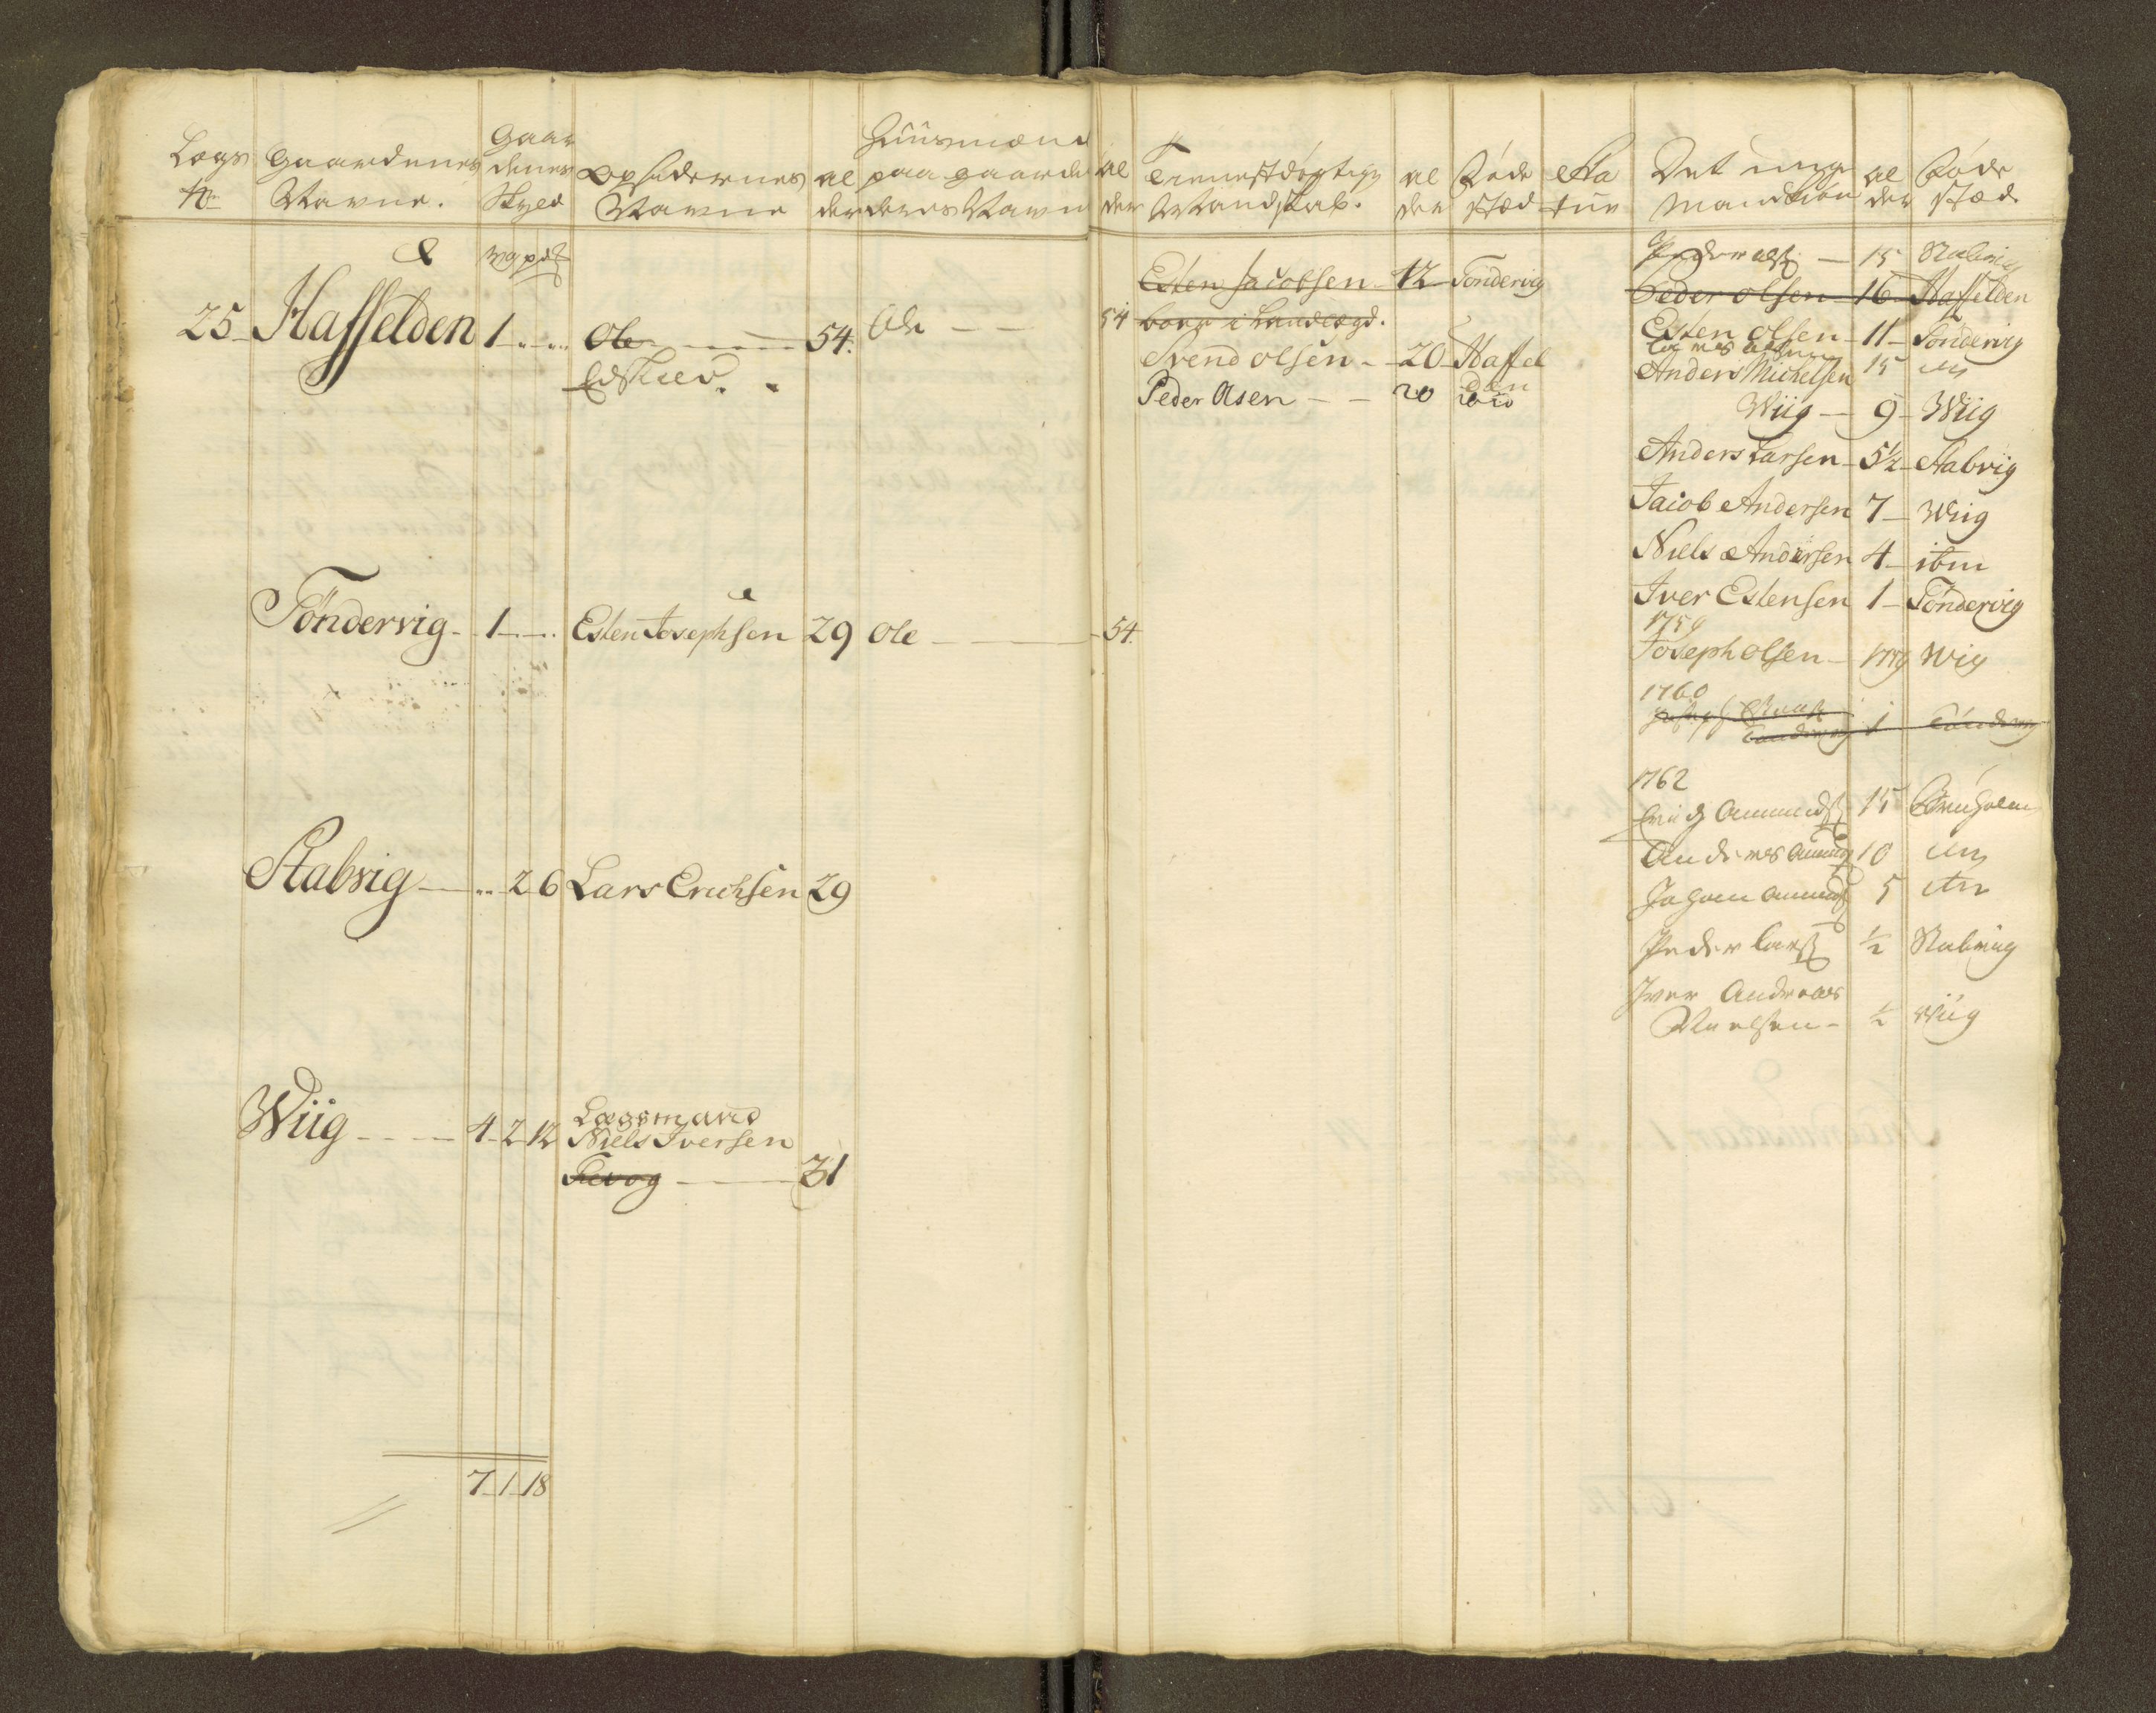 Lægs No
Gaardenes Navne.
Gaardenes Skyld
Opsidernes Navne
alder
Huusmænd paa gaarde deres Navn
alder
Tienestdygtige Mandskab.
alder
Føde stæd
Statue
Det unge Mandkiøn
alder
Føde stæd
25 Haffelden 1 Ole 54. Ole 54
Tøndervig 1 Esten Josephsen 29 Ole 54.
Stabvig 2 6 Lars Erichsen 29
Wiig 4 2 12 Lægsmand
Niels Iversen
31
7 1 18
Esten Jacobsen 12 Tøndervig
boer i Landlægd.
Svend olsen 20 Haffelden
Peder Olsen 20 ibid
Peder 15 Stabvig
Peder olsen 16 Haffelden
Esten olsen 11 Tøndervig
15
Anders Michelsen
Wiig 9 Wiig
Anders Larsen 5 1/2 Stabvig
Jacob Andersen 7 Wiig
Niels Andersen 4 ibm
Iver Estensen 1 Tøndervig
1759
Joseph olsen Wiig
1760
1 Tøndervig
1762
15
10
5
Peder Lars 1/2 Stabvig
Iver Andreas
Nielsen 1/2 Wiig